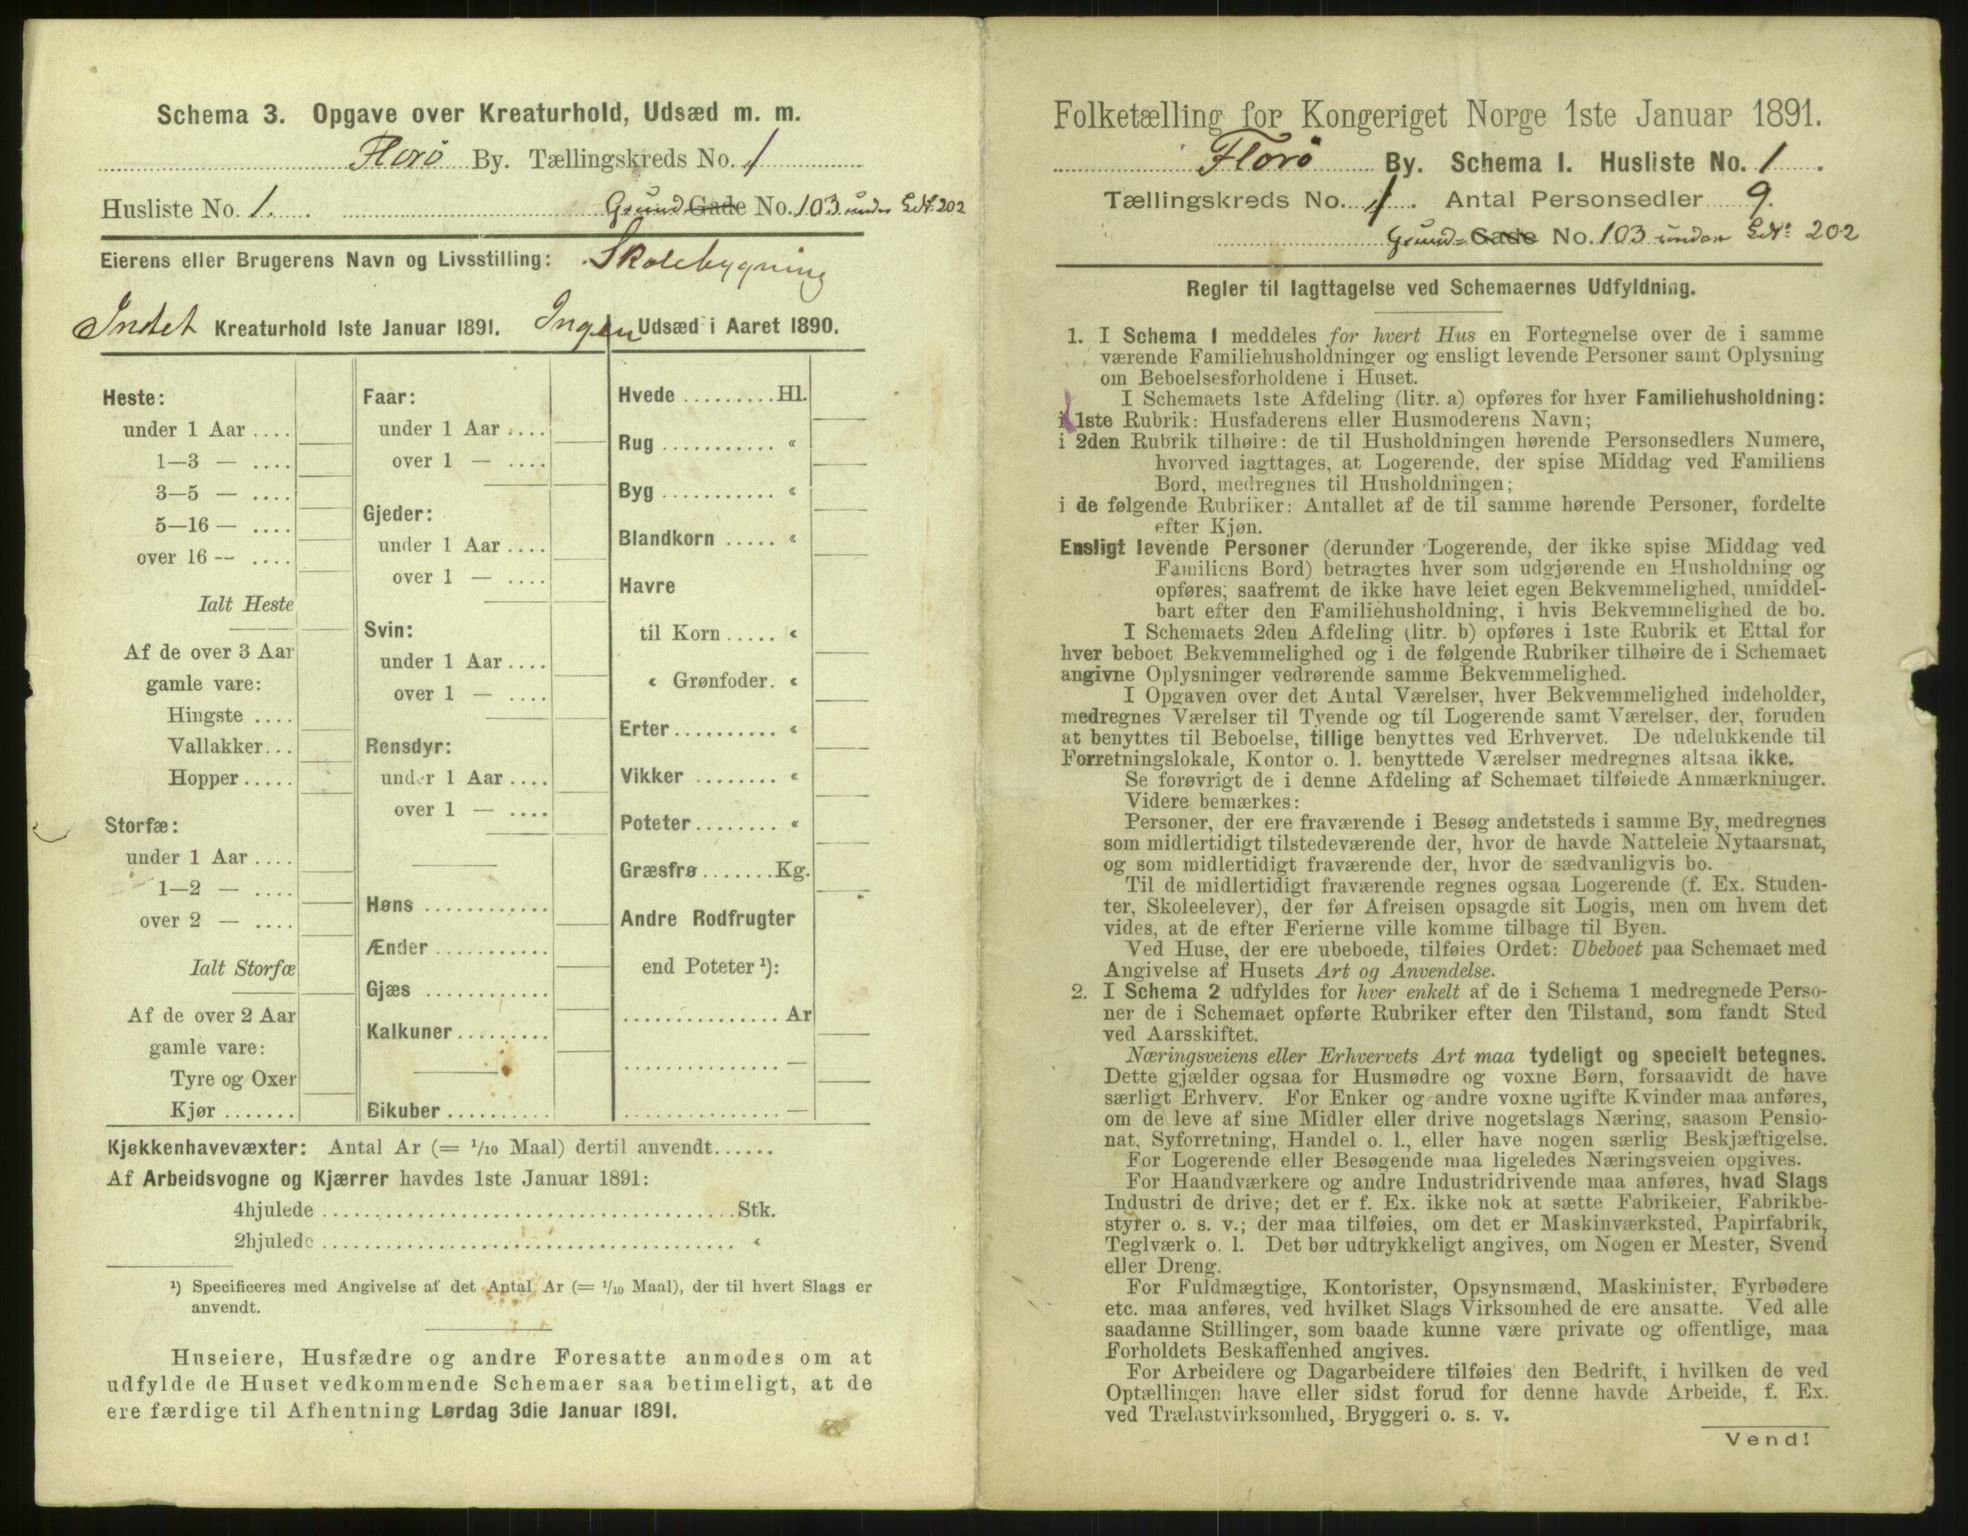 Schema 3. Opgave over Kreaturhold, Udsæd m. m.
Florö By. Tællingskreds No. 1
Husliste No. 1. Grund Gade No. 103 under L.№ 202
Eierens eller Brugerens Navn og Livsstilling: Skolebygning
Intet Kreaturhold 1ste Januar 1891. Ingen Udsæd i Aaret 1890.
Heste:
under 1 Aar ....
1—3 — ....
3—5 — ....
5—16 — ....
over 16 — ....
Ialt Heste
Af de over 3 Aar
gamle vare:
Hingste ....
Vallakker...
Hopper .....
Storfæ:
under 1 Aar ....
1—2 — ....
over 2 — ....
Ialt Storfæ
Af de over 2 Aar
gamle vare:
Tyre og Oxer
Kjør .......
Faar:
under 1 Aar ....
over 1 — ....
Gjeder:
under 1 Aar ....
over 1 — ....
Svin:
under 1 Aar ....
over 1 — ....
Rensdyr:
under 1 Aar ....
over 1 — ....
Høns ............
Ænder ...........
Gjæs ............
Kalkuner .........
Bikuber ..........
Hvede ......... Hl.
Rug ........... «
Byg ........... «
Blandkorn ..... «
Havre
til Korn ..... «
« Grønfoder. «
Erter .......... «
Vikker ........ «
Poteter ........ «
Græsfrø ....... Kg.
Andre Rodfrugter
end Poteter ¹):
............... Ar
............... —
............... —
Kjøkkenhavevæxter: Antal Ar (= 1/10 Maal) dertil anvendt......
Af Arbeidsvogne og Kjærrer havdes 1ste Januar 1891:
4hjulede ....................................... Stk.
2hjulede ....................................... «
¹) Specificeres med Angivelse af det Antal Ar (= 1/10 Maal), der til hvert Slags er
anvendt.
Huseiere, Husfædre og andre Foresatte anmodes om at
udfylde de Huset vedkommende Schemaer saa betimeligt, at de
ere færdige til Afhentning Lørdag 3die Januar 1891.
Folketælling for Kongeriget Norge 1ste Januar 1891.
Florö By. Schema 1. Husliste No. 1.
Tællingskreds No. 1. Antal Personsedler 9.
Grund- Gade No. 103 under L.№ 202
Regler til Iagttagelse ved Schemaernes Udfyldning.
1. I Schema 1 meddeles for hvert Hus en Fortegnelse over de i samme
værende Familiehusholdninger og ensligt levende Personer samt Oplysning
om Beboelsesforholdene i Huset.
I Schemaets 1ste Afdeling (litr. a) opføres for hver Familiehusholdning:
i 1ste Rubrik: Husfaderens eller Husmoderens Navn;
i 2den Rubrik tilhøire: de til Husholdningen hørende Personsedlers Numere,
hvorved iagttages, at Logerende, der spise Middag ved Familiens
Bord, medregnes til Husholdningen;
i de følgende Rubriker: Antallet af de til samme hørende Personer, fordelte
efter Kjøn.
Ensligt levende Personer (derunder Logerende, der ikke spise Middag ved
Familiens Bord) betragtes hver som udgjørende en Husholdning og
opføres, saafremt de ikke have leiet egen Bekvemmelighed, umiddel-
bart efter den Familiehusholdning, i hvis Bekvemmelighed de bo.
I Schemaets 2den Afdeling (litr. b) opføres i 1ste Rubrik et Ettal for
hver beboet Bekvemmelighed og i de følgende Rubriker tilhøire de i Schemaet
angivne Oplysninger vedrørende samme Bekvemmelighed.
I Opgaven over det Antal Værelser, hver Bekvemmelighed indeholder,
medregnes Værelser til Tyende og til Logerende samt Værelser, der, foruden
at benyttes til Beboelse, tillige benyttes ved Erhvervet. De udelukkende til
Forretningslokale, Kontor o. l. benyttede Værelser medregnes altsaa ikke.
Se forøvrigt de i denne Afdeling af Schemaet tilføiede Anmærkninger.
Videre bemærkes:
Personer, der ere fraværende i Besøg andetsteds i samme By, medregnes
som midlertidigt tilstedeværende der, hvor de havde Natteleie Nytaarsnat,
og som midlertidigt fraværende der, hvor de sædvanligvis bo.
Til de midlertidigt fraværende regnes ogsaa Logerende (f. Ex. Studen-
ter, Skoleelever), der før Afreisen opsagde sit Logis, men om hvem det
vides, at de efter Ferierne ville komme tilbage til Byen.
Ved Huse, der ere ubeboede, tilføies Ordet: Ubeboet paa Schemaet med
Angivelse af Husets Art og Anvendelse.
2. I Schema 2 udfyldes for hver enkelt af de i Schema 1 medregnede Perso-
ner de i Schemaet opførte Rubriker efter den Tilstand, som fandt Sted
ved Aarsskiftet.
Næringsveiens eller Erhvervets Art maa tydeligt og specielt betegnes.
Dette gjælder ogsaa for Husmødre og voxne Børn, forsaavidt de have
særligt Erhverv. For Enker og andre voxne ugifte Kvinder maa anføres,
om de leve af sine Midler eller drive nogetslags Næring, saasom Pensio-
nat, Syforretning, Handel o. l., eller have nogen særlig Beskjæftigelse.
For Logerende eller Besøgende maa ligeledes Næringsveien opgives.
For Haandværkere og andre Industridrivende maa anføres, hvad Slags
Industri de drive; det er f. Ex. ikke nok at sætte Fabrikeier, Fabrikbe-
styrer o. s. v.; der maa tilføies, om det er Maskinværksted, Papirfabrik,
Teglværk o. l. Det bør udtrykkeligt angives, om Nogen er Mester, Svend
eller Dreng.
For Fuldmægtige, Kontorister, Opsynsmænd, Maskinister, Fyrbødere
etc. maa anføres, ved hvilket Slags Virksomhed de ere ansatte. Ved alle
saadanne Stillinger, som baade kunne være private og offentlige, maa
Forholdets Beskaffenhed angives.
For Arbeidere og Dagarbeidere tilføies den Bedrift, i hvilken de ved
Optællingen have eller sidst forud for denne havde Arbeide, f. Ex.
ved Trælastvirksomhed, Bryggeri o. s. v.
Vend!